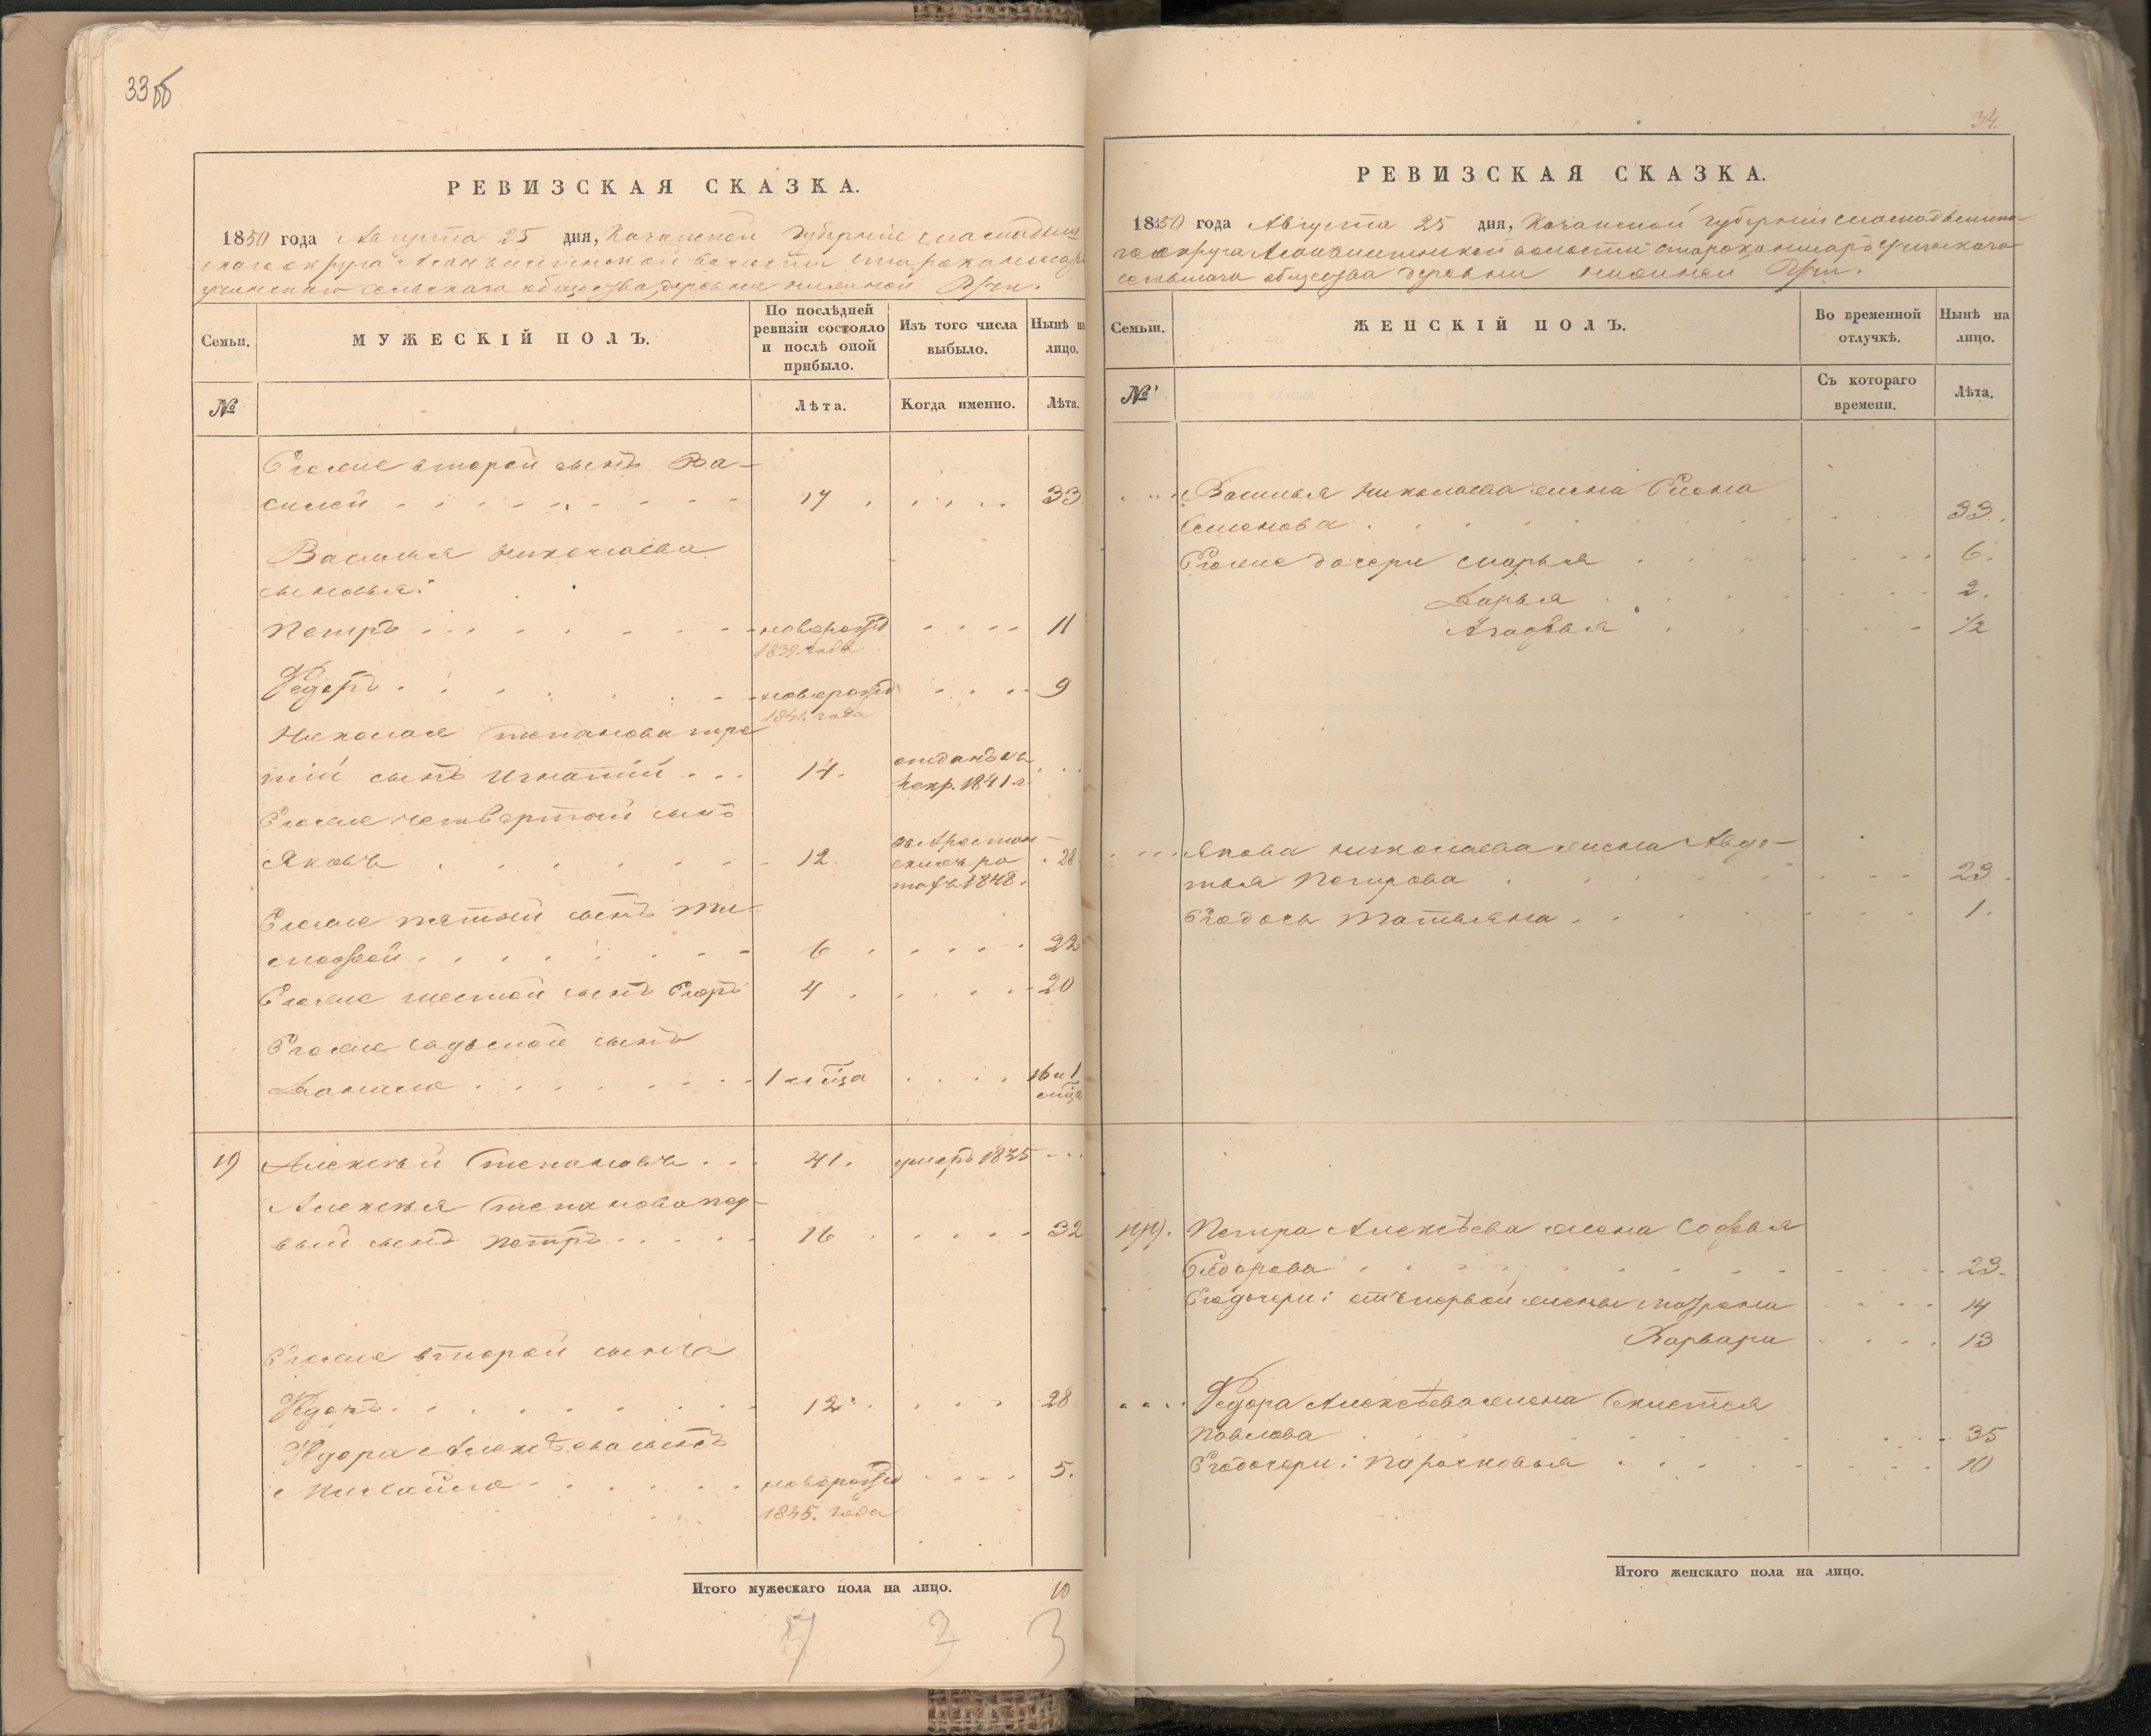 33об
РЕВИЗСКАЯ СКАЗКА.
1850 года Августа 25 дня, Казанской Губернии
округа волости
сельскаго общества деревни Учи.
Семьи.
МУЖЕСКІЙ ПОЛЪ.
По послѣдней ревизіи состояло и послѣ оной прибыло.
Изъ того числа выбыло.
Нынѣ на лицо.
№
Лѣта.
Когда именно.
Лѣта.
Егоже второй сынъ Ва-
силей 17 33
Василья Николаева
сыновья:
Петръ новорожд 11
1839 года
Федоръ новорожд 9
1841 года
Николая Степанова тре
тій сынъ Игнатій 14. отданъ въ
рекр. 1841 г
Егоже четвертый сынъ
Яковъ 12 въ Арестан
скихъ ро 28
тахъ 1848.
Егоже пятый сынъ Ти-
мофей 6 22
Егоже шестой сынъ Егоръ 4 20
Егоже седьмой сынъ
Данило 1 мѣца 16 и 1
мѣца
19 Алексѣй Степановъ 41. умеръ 1845
Алексѣя Степанова пер-
вый сынъ Петръ 16 32
Егоже второй сынъ
Федоръ 12 28
Федора Алексѣева сынъ
Михайло новорожд 5.
1845. года
Итого мужескаго пола на лицо. 10
7 3 3
34.
РЕВИЗСКАЯ СКАЗКА.
1850 года Августа 25 дня, Казанской губерніи
округа волости
сельскаго общества деревни Учи.
Семьи.
ЖЕНСКІЙ ПОЛЪ.
Во временной отлучкѣ.
Нынѣ на лицо.
№
Съ котораго времени.
Лѣта.
Василья Николаева жена Елена
Семенова 33.
Егоже дочери Марья 6.
Дарья 2.
Агафья 1/2
Якова Николаева жена Авдо-
тья Петрова 23
Егодочь Татьяна 1.
19. Петра Алексѣева жена Софья
Сидорова 23
Егодочери: отъ первой жены Матрена 14
Варвара 13
Федора Алексѣева жена
Павлова 35
Егодочери: Парасковья 10
Итого женскаго пола на лицо.